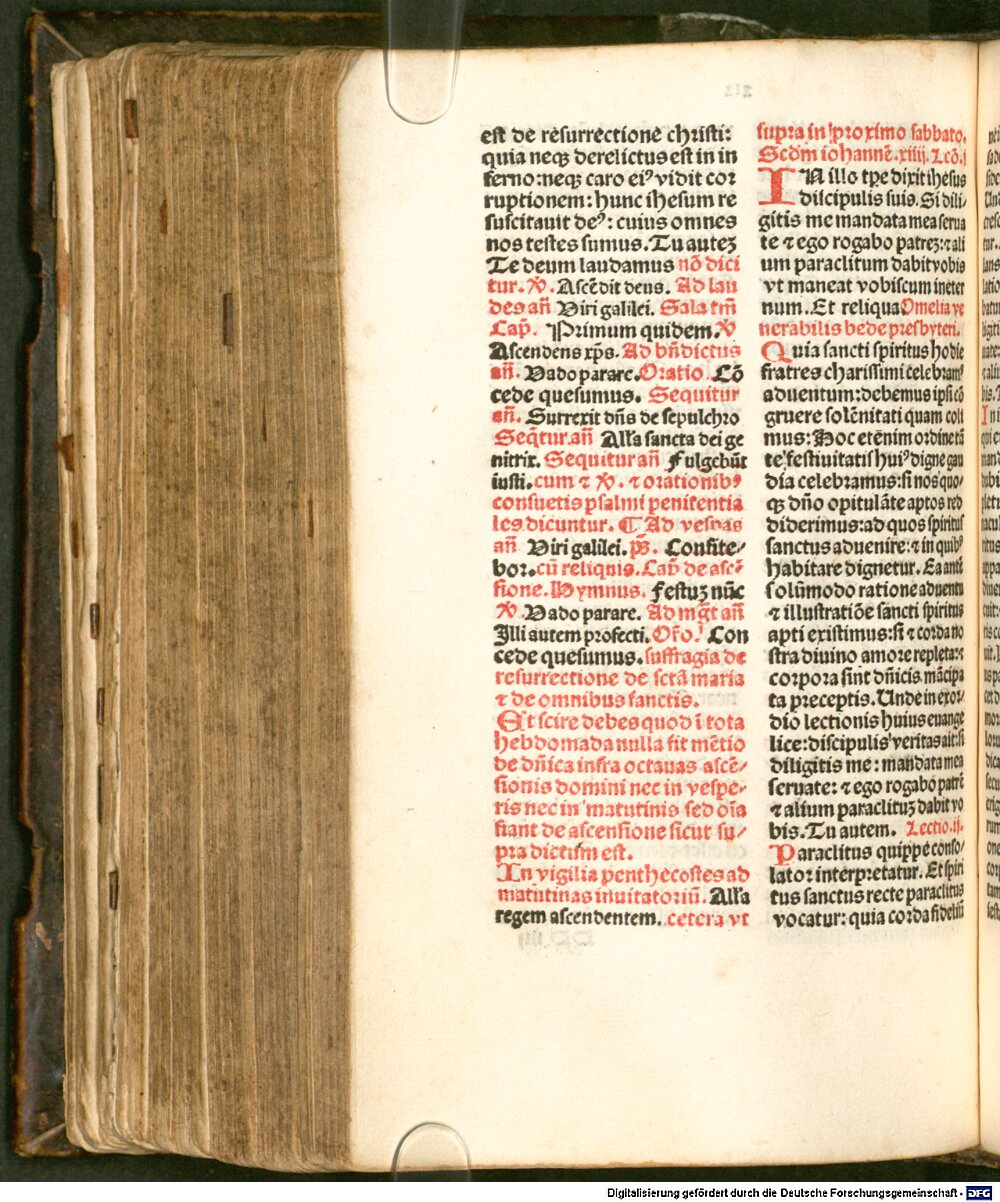 est de resurrectione christi:
quia neqꝫ derelictus est in in
ferno: neqꝫ caro eiꝰ vidit cor
ruptionem: hunc ihesum re
suscitauit deꝰ: cuius omnes
nos testes sumus. Tu auteꝫ
Te deum laudamus nō dici
tur. ℣. Ascēdit deus. Ad lau
des añ Viri galilei. Sala tm̄
Cap̄. Primum quidem. ℣
Ascendens xp̄s. Ad bn̄dictus
añ. Vado parare. Oratio. Cō
cede quesumus. Sequitur
añ. Surrexit dn̄s de sepulchro
Seq̄tur.añ Alla sancta dei ge
nitrix. Sequitur añ Fulgebūt
iusti. cum ⁊ ℣. ⁊ orationibꝰ
consuetis psalmi penitentia
les dicuntur. ¶ Ad vesꝑas
añ Viri galilei. ps̄. Confite⸗
bor. cū reliquis. Cap̄ de ascē
sione. Hymnus. Festuꝫ nūc
℣. Vado parare. Ad mgt̄ añ
Illi autem profecti. Or̄o. Con
cede quesumus. suffragia de
resurrectione de sctā maria
⁊ de omnibus sanctis.
Et scire debes quod ī tota
hebdomada nulla fit mētio
de dn̄ica infra octauas ascē⸗
sionis domini nec in vespe⸗
ris nec in matutinis sed oīa
fiant de ascensione sicut su⸗
pra dictum est.
In vigilia penthecostes ad
matutinas inuitatoriū. Alla
regem ascendentem. cetera vt
supra in proximo sabbato.
Scdm iohannē. xiiij. Lcō. j
IN illo tpe dixit ihesus
discipulis suis. Si dili⸗
gitis me mandata mea serua
te ⁊ ego rogabo patreꝫ: ⁊ ali
um paraclitum dabit vobis
vt maneat vobiscum in eter
num. Et reliqua Omelia ve
nerabilis bede presbyteri.
Quia sancti spiritus hodie
fratres charissimi celebramꝰ
aduentum: debemus ipsi cō
gruere solēnitati quam coli
mus: Hoc etenim ordine tā
te festiuitatis huiꝰ digne gau
dia celebramus: si nos quo⸗
qꝫ dn̄o opitulāte aptos red
diderimus: ad quos spiritus
sanctus aduenire: ⁊ in quibꝰ
habitare dignetur. Ea antē
solūmodo ratione aduentu
⁊ illustratiōe sancti spiritus
apti existimus: si ⁊ corda no
stra diuino amore repleta: ⁊
corpora sint dn̄icis mācipa
ta preceptis. Unde in exor⸗
dio lectionis huius euange
lice: discipulis veritas ait: si
diligitis me: mandata mea
seruate: ⁊ ego rogabo patrē
⁊ alium paraclituꝫ dabit vo
bis. Tu autem. Lectio. ij.
Paraclitus quippe conso⸗
lator interpretatur. Et spiri
tus sanctus recte paraclitus
vocatur: quia corda fideliū
Digitalisierung gefördert durch die Deutsche Forschungsgemeinschaft - DFG